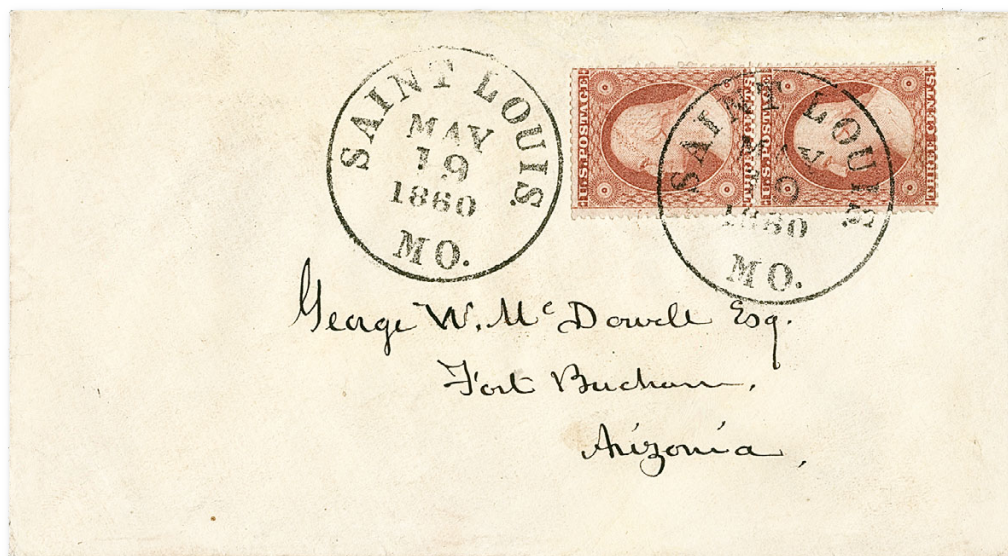 SAINT LOUIS.
MAY
19
1860
MO.
U.S. POSTAGE
U.S. POSTAGE
THREE CENTS
SAINT LOUIS.
MAY
1860
MO.
George W. McDowell Esq.
Fort Buchanan,
Arizonia,